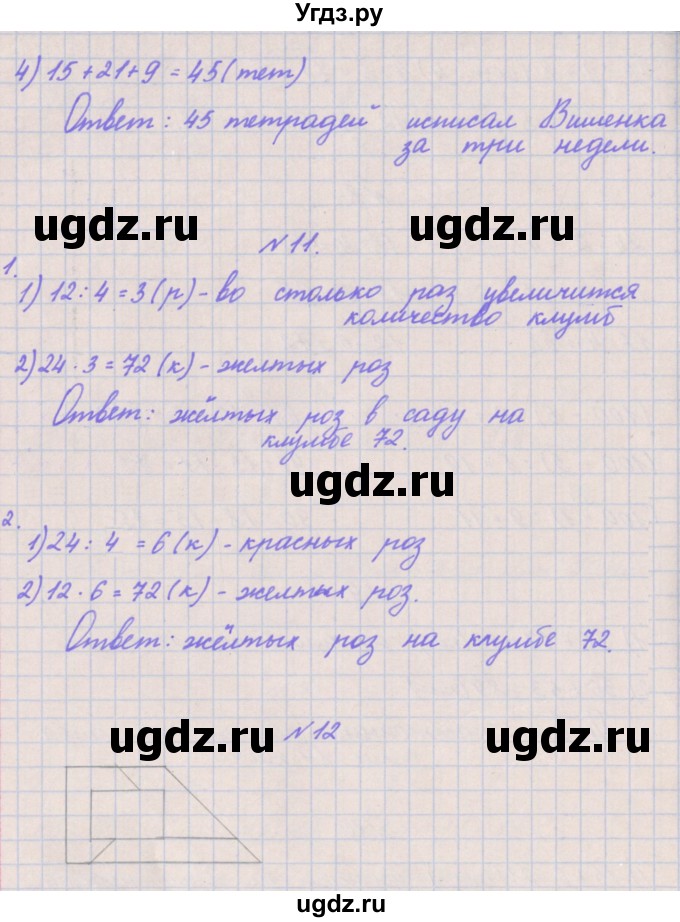 Угдз.ру
4) 15+21+9=45(тет)
Ответ: 45 тетрадей исписал Вишенка
за три недели.
ugdz.ru ugdz.ru
№11.
1.
1) 12:4=3(р)-во столько раз увеличится
количество клумб
2) 24·3=72(к)-желтых роз
Ответ: жёлтых роз в саду на
клумбе 72.
ugdz.ru
2.
1) 24:4=6(к)-красных роз
2) 12·6=72(к)-желтых роз.
Ответ: жёлтых роз на клумбе 72.
№12
ugdz.ru ugdz.ru
ugdz.ru